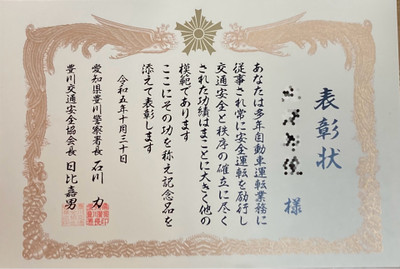 表彰状
様
あなたは多年自動車運転業務に
従事され常に安全運転を励行し
交通安全と秩序の確立に尽く
された功績はまことに大きく他の
模範であります
ここにその功を称え記念品を
添えて表彰します
令和五年十月三十日
愛知県豊川警察署長 石川 力
豊川交通安全協会長 日比嘉男